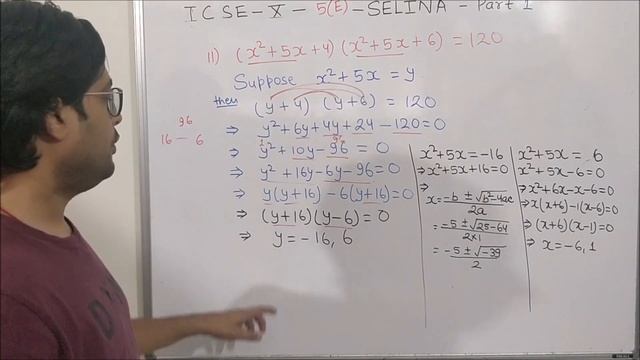 ICSE-X-5(E)-SELINA-Part 1
11) (x²+5x+4)(x²+5x+6)=120
Suppose x²+5x=y
then (y+4)(y+6)=120
⇒ y²+6y+4y+24-120=0
⇒ y²+10y-96=0
96
16 — 6
⇒ y²+16y-6y-96=0
⇒ y(y+16)-6(y+16)=0
⇒ (y+16)(y-6)=0
⇒ y=-16, 6
x²+5x=-16
⇒ x²+5x+16=0
⇒ x=-b±√b²-4ac/2a
=-5±√25-64/2×1
=-5±√-39/2
x²+5x=6
⇒ x²+5x-6=0
⇒ x²+6x-x-6=0
⇒ x(x+6)-1(x-6)=0
⇒ (x+6)(x-1)=0
⇒ x=-6,1